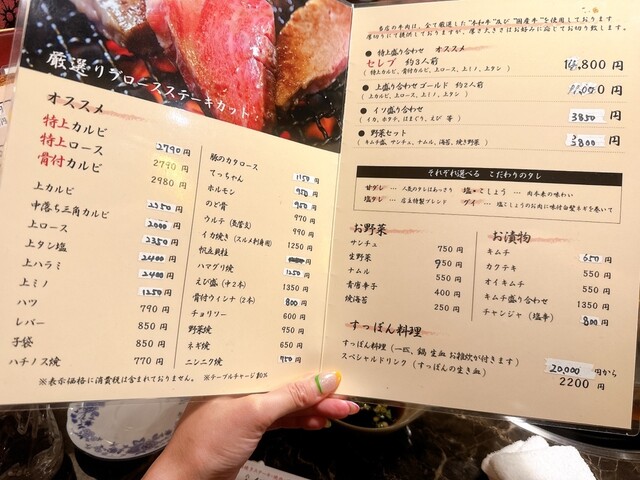 厳選リブロースステーキカット
オススメ
特上カルビ 2790円
特上ロース 2790円
骨付カルビ 2980円
上カルビ 2350円
中落ち三角カルビ 2200円
上ロース 2000円
上タン塩 2350円
上ハラミ 2400円
上ミノ 1250円
ハツ 790円
レバー 850円
子袋 850円
ハチノス焼 770円
豚のカタロース 1150円
てっちゃん
ホルモン 950円
のど骨 950円
ウルテ(気管支) 970円
イカ焼き(スルメ刺身用) 990円
帆立貝柱 1250円
ハマグリ焼
えび塩(中2本) 1350円
骨付ウィンナ(2本) 800円
チョリリー 600円
野菜焼 950円
ネギ焼 650円
ニンニク焼 750円
※表示価格に消費税は含まれておりません。 ※テーブルチャージ
当店の牛肉は、全て厳選した"本和牛"及び"国産牛"を使用しております
厚切りにて提供しておりますが、厚さ大きさはお好みに応じてお切り致します。
● 特上盛り合わせ オススメ
セレブ 約3人前 14,800円
(特上カルビ、骨付カルビ、上ロース、上ミノ、上タン)
● 上盛り合わせゴールド 約2人前 11,000円
(上カルビ、上ロース、上ミノ、上タン)
● イソ盛り合わせ 3850円
(イカ、ホタテ、はまぐり、えび 等)
● 野菜セット 3800円
(キムチ盛、サンチュ、ナムル、海苔、焼き野菜)
それぞれ選べる こだわりのタレ
甘ダレ … 人気のタレはあっさり 塩・こしょう … 肉本来の味わい
塩タレ … 店主特製ブレンド
お野菜
サンチュ 750円
生野菜 950円
ナムル 550円
青唐辛子 400円
焼海苔 250円
お漬物
キムチ 650円
カクテキ 550円
オイキムチ 550円
キムチ盛り合わせ 1350円
チャンジャ(塩辛) 800円
すっぽん料理
すっぽん料理(一匹、鍋 生血 お雑炊が付きます) 20,000円から
スペシャルドリンク(すっぽんの生き血) 2200円